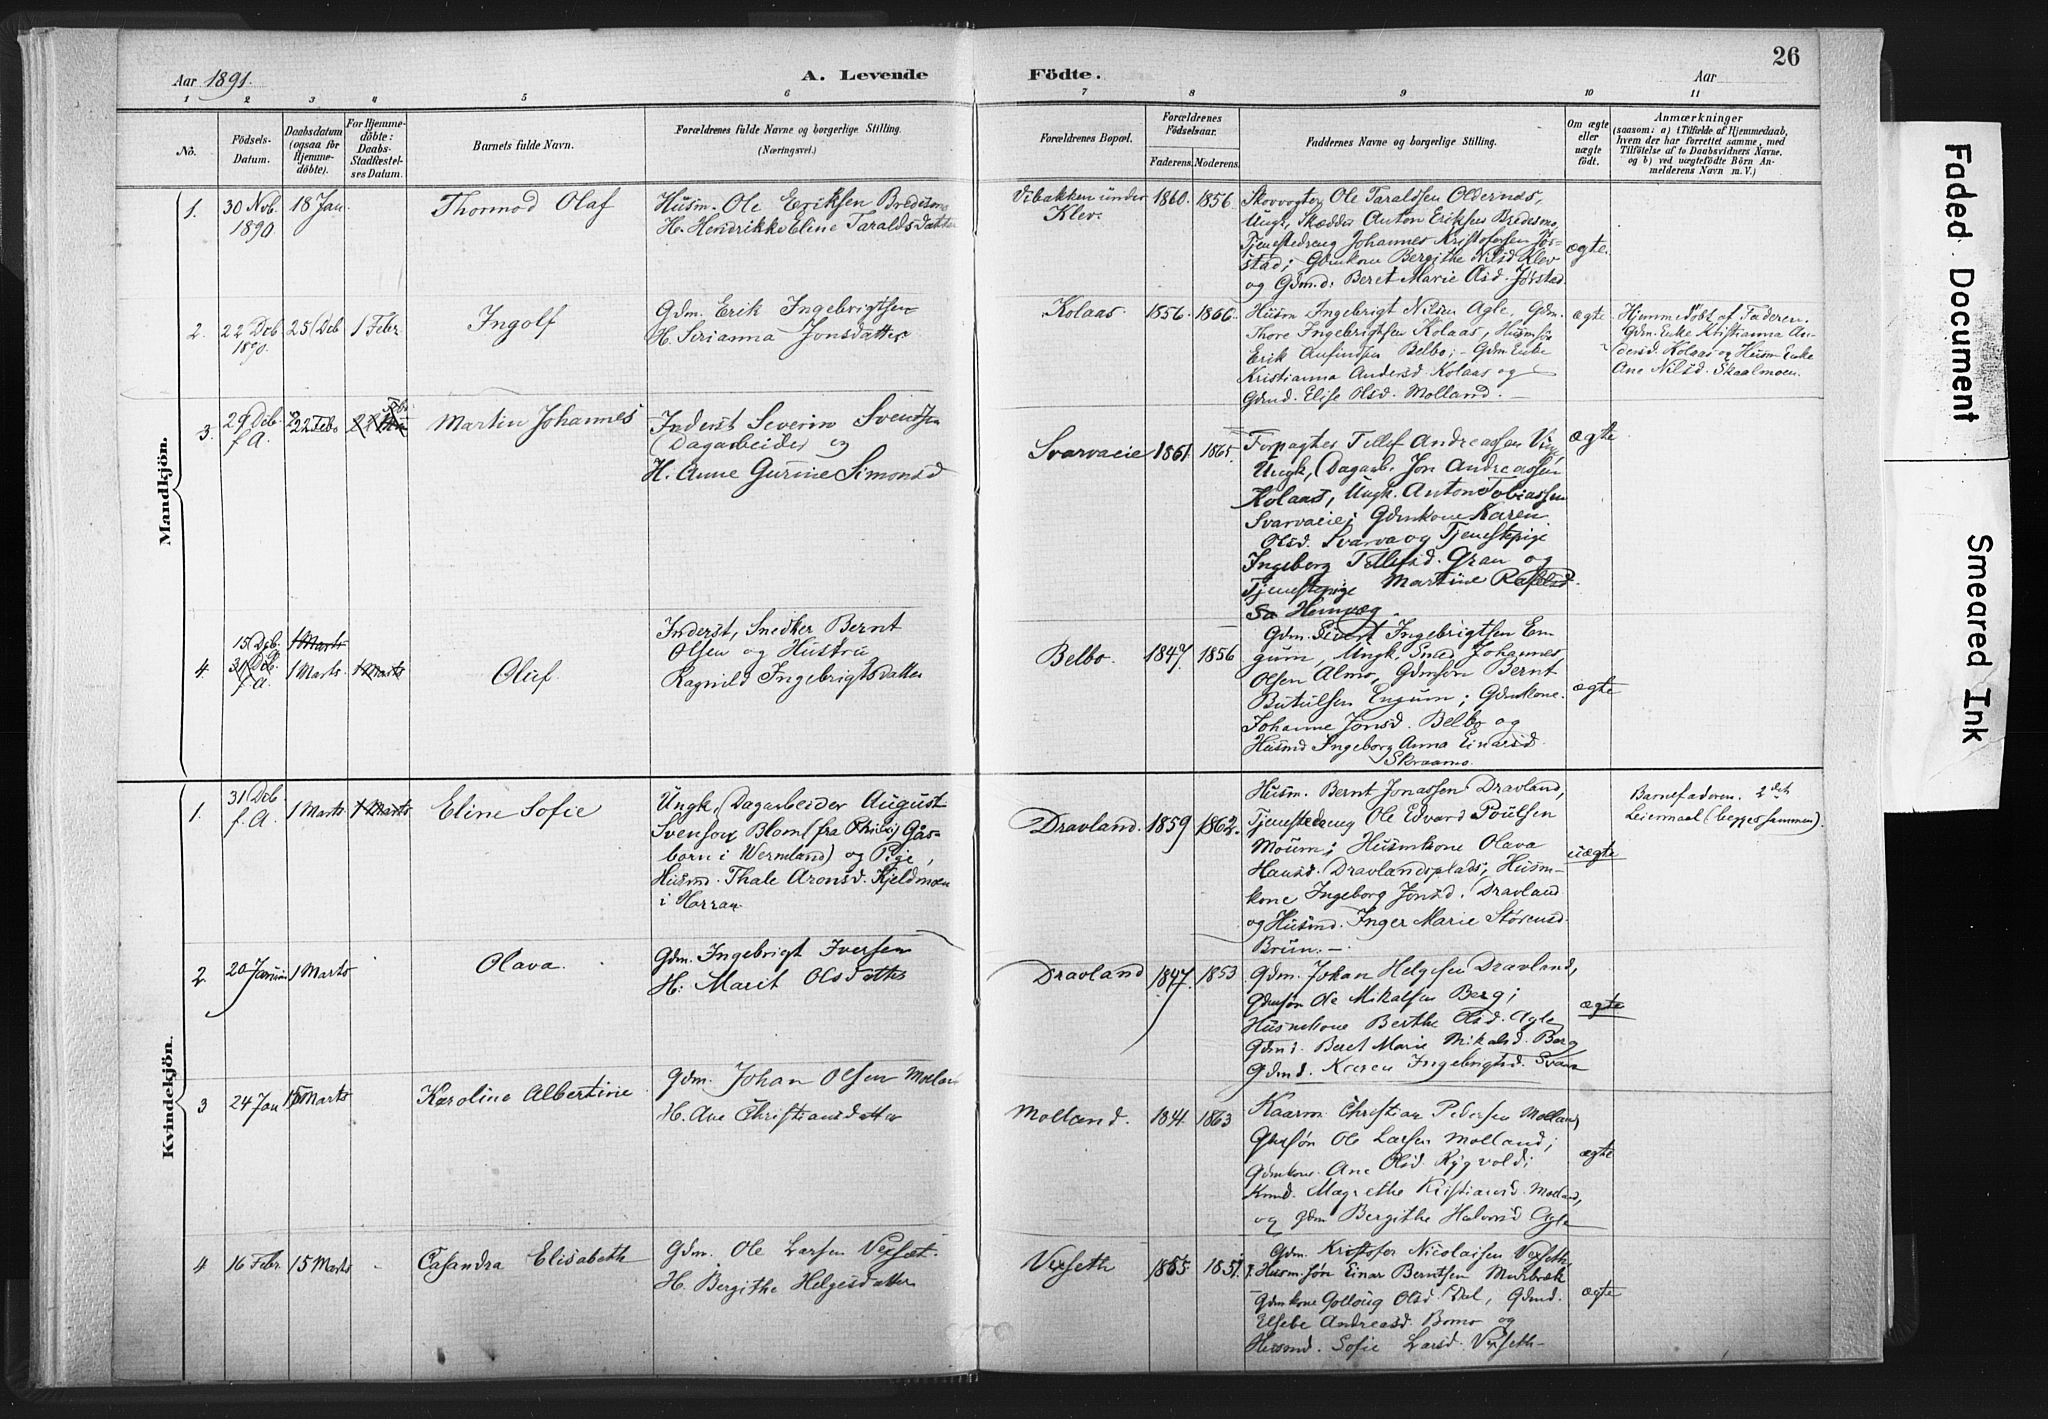 Aar 1891.
A. Levende Födte.
Aar
26
1 2 3 4 5 6 7 8 9 10 11
No.
Födsels-Datum.
Daabsdatum (ogsaa for Hjemmedöbte).
For Hjemmedöbte: Daabs-Stadfæstelses Datum.
Barnets fulde Navn.
Forældrenes fulde Navne og borgerlige Stilling.
(Næringsvei.)
Forældrenes Bopæl.
Forældrenes Födselsaar.
Faderens. Moderens.
Faddernes Navne og borgerlige Stilling.
Om ægte eller uægte födt.
Anmærkninger
(saasom: a) i Tilfælde af Hjemmedaab,
hvem der har forrettet samme, med
Tilföielse af to Daabsvidners Navne,
og b) ved uægtefödte Börn Anmelderens Navn m. V.)
Mandkjön.
1. 30 Nov. 1890 18 Jan. Thormod Olaf
Husm. Ole Eriksen Bredesmo
H. Hendrikke Eline Taraldsdatter
Vibakken under Klev. 1860. 1856.
Skovvogter Ole Taraldsen Oldernæs,
Ungk. Skædder Anton Eriksen Bredesmo
Tjenestedreng Johannes Kristofersen Jørstad; Gdmkone Bergithe Nilsd Klev
og Gdmd. Beret Marie Olsd. Jørstad.
ægte.
2. 22 Deb 1890. 25 Deb 1 Febr Ingolf
Gdm. Erik Ingebrigtsen
H. Serianna Jonsdatter
Kolaas. 1856. 1866.
Husm Ingebrigt Nilsen Agle, Gdm.
Thore Ingebrigtsen Kolaas, Husmsøn
Erik Anfindsen Belbo; Gdm Enke
Kristianna Andersd. Kolaas og
Gdmd. Elise Olsd. Molland.
ægte
Hjemmedøbt af Faderen.
Gdm. Enke Kristianna Andersd. Kolaas og Husm Enke
Ane Nilsd. Skaalmoen.
3. 29 Deb. f. A. 22 Feb Martin Johannes
Inderst Severin Svendsen
(Dagarbeider og
H. Anne Gurine Simonsd
Svarvaeie 1861 1865.
Forpagter Tellef Andreassen
Ungk, (Dagarb. Jon Andreassen
Kolaas, Ungk. Anton Tobiassen
Svarvaeie; Gdmkone Karen
Olsd. Svarva og Tjenestepige
Ingeborg Tellefsd. Gran og
Tjenestepige Martine
Hemvæg.
ægte
4. 15 Deb. f. A. 1 Marts Oluf.
Inderst, Snedker Bernt
Olsen og Hustru
Ragnild Ingebrigtsdatter
Belbo. 1847. 1856
Gdm. Sivert Ingebrigtsen Engum, Ungk. Sned. Johannes
Olsen Almo, Gdmsøn Bernt
Butulsen Engum; Gdmkone.
Johanne Jonsd. Belbo og
Husmd Ingeborg Anna Einarsd.
Skraamo.
ægte
Kvindekjön.
1. 31 Deb. f. A. 1 Marts 1 Marts Eline Sofie
Ungk, Dagarbeider August
Svenson Blom (fra Gåsborn i Wermland) og Pige,
Husmd. Thale Aronsd. Kjeldmoen
i Harran
Dravland. 1859 1862.
Husm. Bernt Jonassen Dravland,
Tjenestedreng Ole Edvard Poulsen
Moum; Husmkone Olava
Hansd. Dravlandsplads; Husmkone Ingeborg Jonsd. Dravland
og Husmd. Inger Marie Størensd.
Brün.
uægte
Barnefaderen. 2det
Leiermaal (begges sammen).
2. 20 Januar 1 Marts Olava.
Gdm. Ingebrigt Iversen
H. Marit Olsdatter
Dravland 1847. 1853
Gdm. Johan Helgesen Dravland,
Gdmsøn Ole Mikalsen Berg;
Husmkone Berthe Olsd. Agle
Gdmd. Beret Marie Mikalsd. Berg
Gdmd. Karen Ingebrigtsd.
ægte
3 24 Jan 15 Marts Karoline Albertine
Gdm. Johan Olsen Molland
H. Ane Christiansdatter
Molland. 1844. 1863
Kaarm. Christian Pedersen Molland,
Gdmsøn Ole Larsen Molland;
Gdmkone. Ane Olsd. Rygvold;
Kmd. Magrethe Kristiansd. Molland,
og Gdm Bergithe Halvorsd Agle
ægte
4 16 Febr 15 Marts Casandra Elisabeth
Gdm. Ole Larsen Vexset.
H. Bergithe Helgesdatter
Vexseth 1855 1851.
Gdm. Kristofer Nicolaisen Vexseth,
Husm.søn Einar Berntsen
Gdmkone Golloug Olsd Dal, Gdmd.
Elsebe Andreasd. Bomo og
Husmd. Sofie Larsd. Vexseth
ægte
Faded Document
Smeared Ink